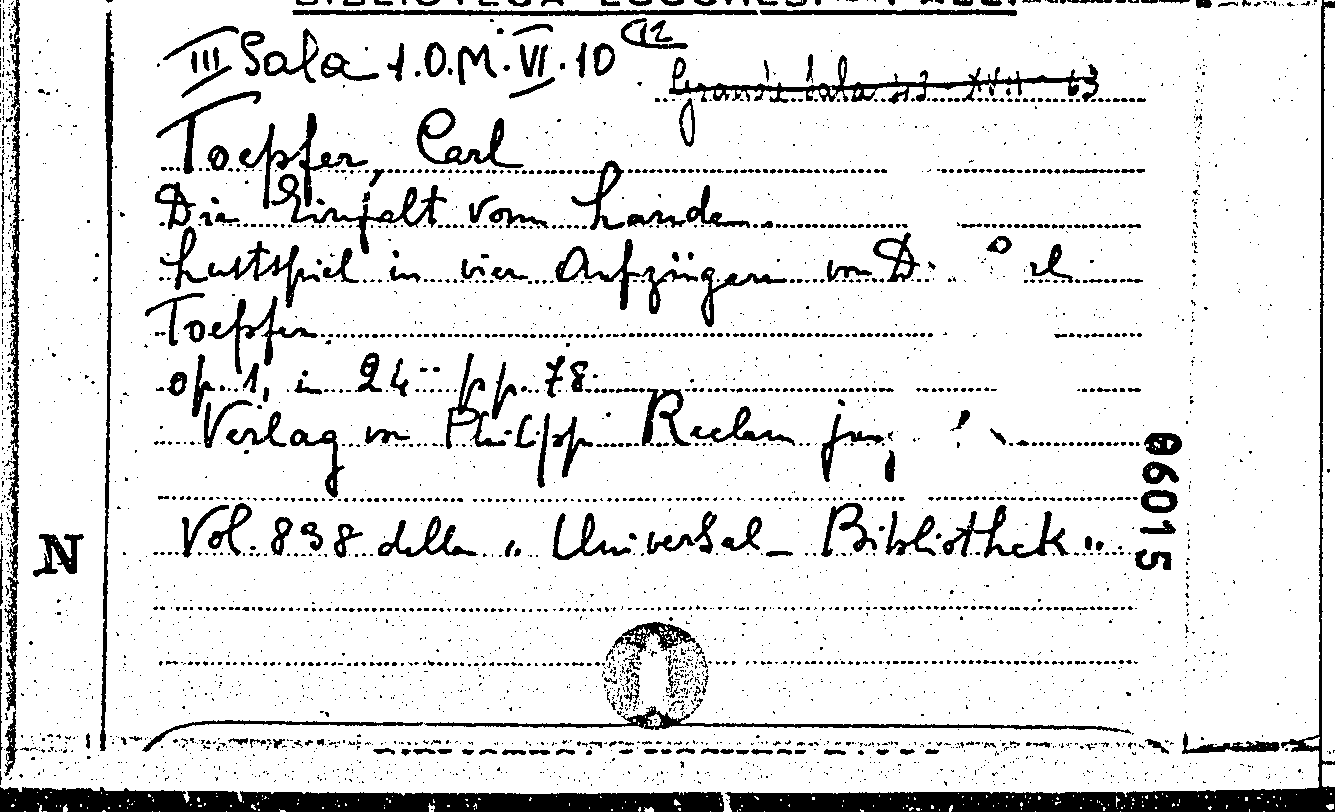 III Sala 1.O.M.VI.10 (12
Grande Sala 43 XVII 63
Toepfer, Carl
Die Einfalt vom Lande.
Lustspiel in vier Aufzügen von D.
Toepfer.
op. 1, in 24° pp. 78.
Verlag von Philipp Reclam jun.
Vol. 838 della „Universal-Bibliothek".
N
96015